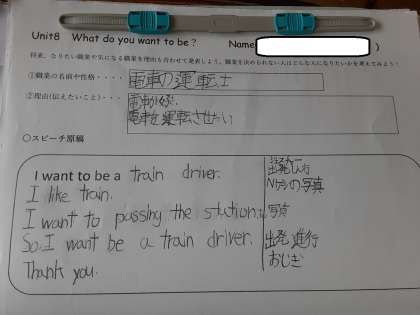 Unit8 What do you want to be? Name( )
将来、なりたい職業や気になる職業を理由も合わせて発表しよう。職業を決められない人はどんな大人になりたいかを考えてみよう!
①職業の名前や性格・・・・電車の運転士
②理由(伝えたいこと)・・・・電車が好き。
電車を運転させたい
○スピーチ原稿
I want to be a train driver. 出発進行
I like train. Nゲージの写真
I want to passing the station. 写真
So, I want be a train driver. 出発進行
Thank you. おじぎ